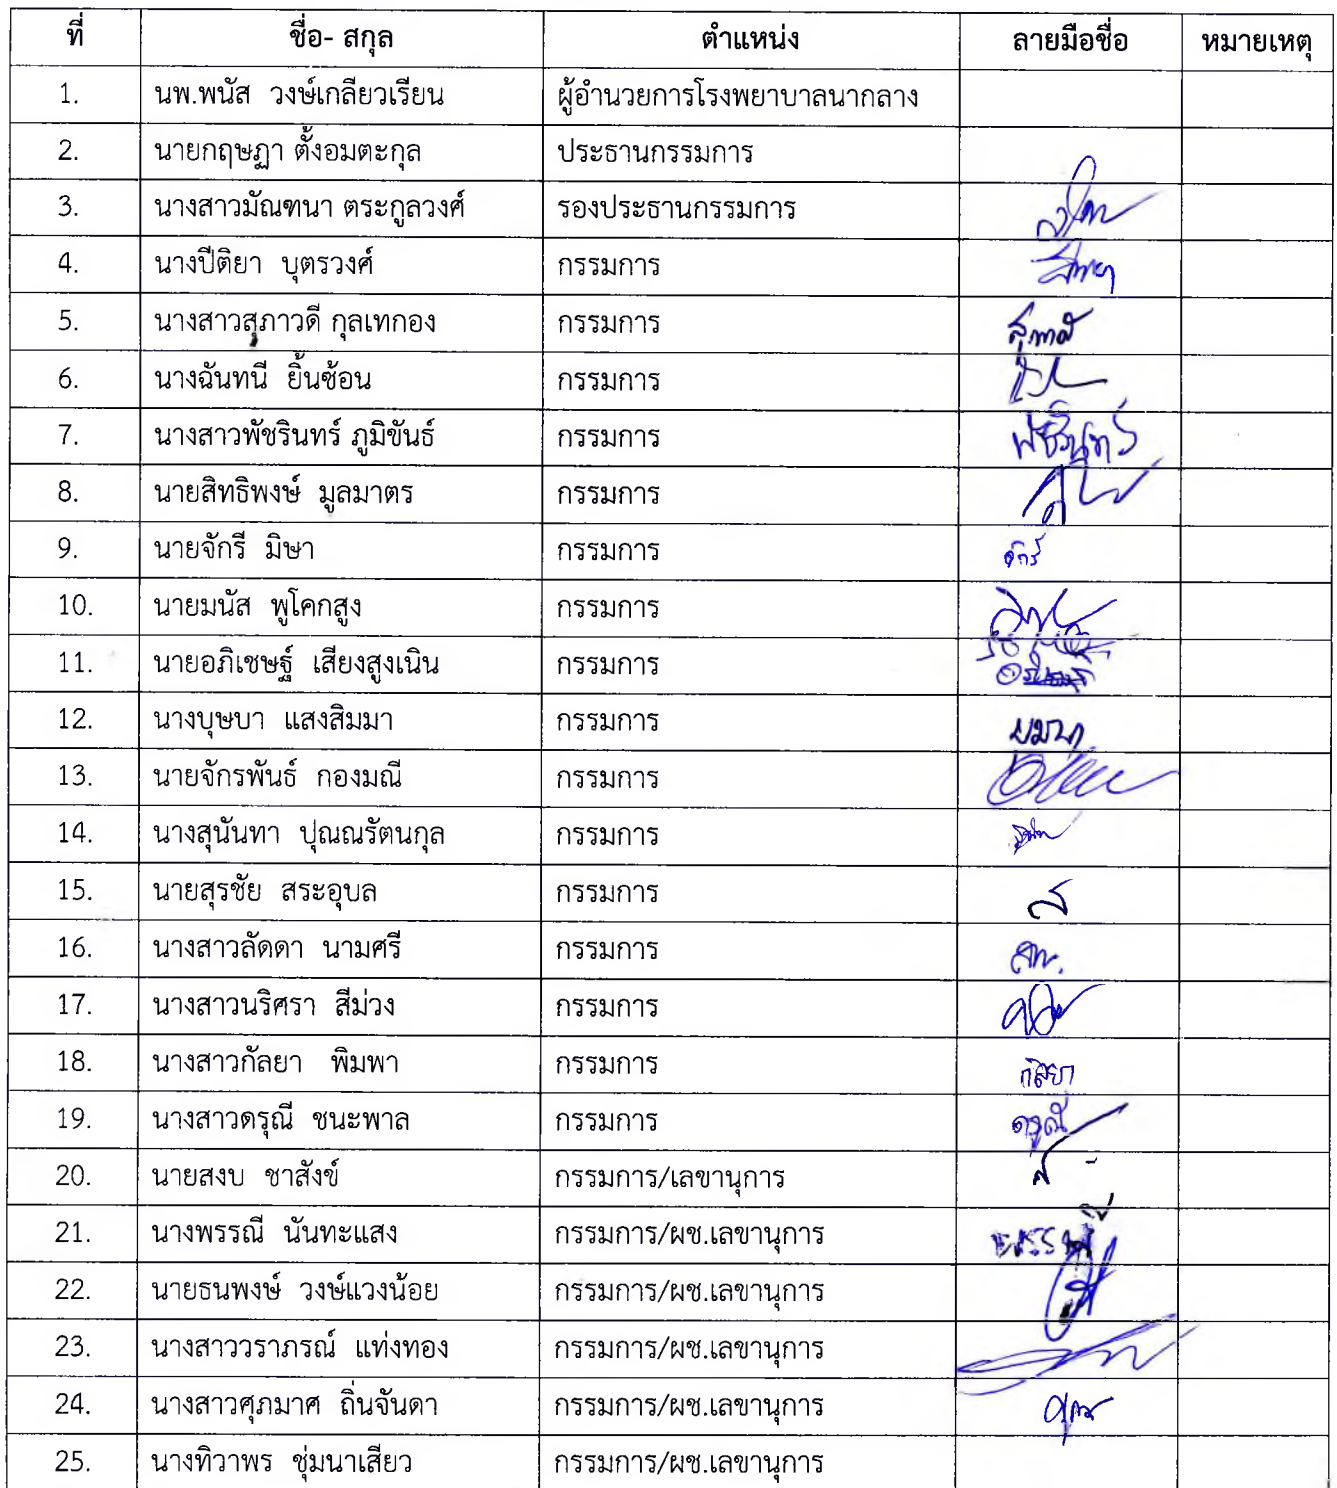 ที่ ชื่อ- สกุล ตำแหน่ง ลายมือชื่อ หมายเหตุ
1. นพ.พนัส วงษ์เกลียวเรียน ผู้อำนวยการโรงพยาบาลนากลาง
2. นายกฤษฏา ตั้งอมตะกุล ประธานกรรมการ
3. นางสาวมัณฑนา ตระกูลวงศ์ รองประธานกรรมการ
4. นางปีติยา บุตรวงศ์ กรรมการ
5. นางสาวสุภาวดี กุลเทกอง กรรมการ สุภาวดี
6. นางฉันทนี ยิ้นซ้อน กรรมการ
7. นางสาวพัชรินทร์ ภูมิขันธ์ กรรมการ พัชรินทร์
8. นายสิทธิพงษ์ มูลมาตร กรรมการ
9. นายจักรี มิษา กรรมการ จักรี
10. นายมนัส พูโคกสูง กรรมการ
11. นายอภิเชษฐ์ เสียงสูงเนิน กรรมการ
12. นางบุษบา แสงสิมมา กรรมการ
13. นายจักรพันธ์ กองมณี กรรมการ
14. นางสุนันทา ปุณณรัตนกุล กรรมการ
15. นายสุรชัย สระอุบล กรรมการ
16. นางสาวลัดดา นามศรี กรรมการ
17. นางสาวนริศรา สีม่วง กรรมการ
18. นางสาวกัลยา พิมพา กรรมการ กัลยา
19. นางสาวดรุณี ชนะพาล กรรมการ ดรุณี
20. นายสงบ ชาสังข์ กรรมการ/เลขานุการ
21. นางพรรณี นันทะแสง กรรมการ/ผช.เลขานุการ พรรณี
22. นายธนพงษ์ วงษ์แวงน้อย กรรมการ/ผช.เลขานุการ
23. นางสาววราภรณ์ แท่งทอง กรรมการ/ผช.เลขานุการ
24. นางสาวศุภมาศ ถิ่นจันดา กรรมการ/ผช.เลขานุการ
25. นางทิวาพร ชุ่มนาเสียว กรรมการ/ผช.เลขานุการ